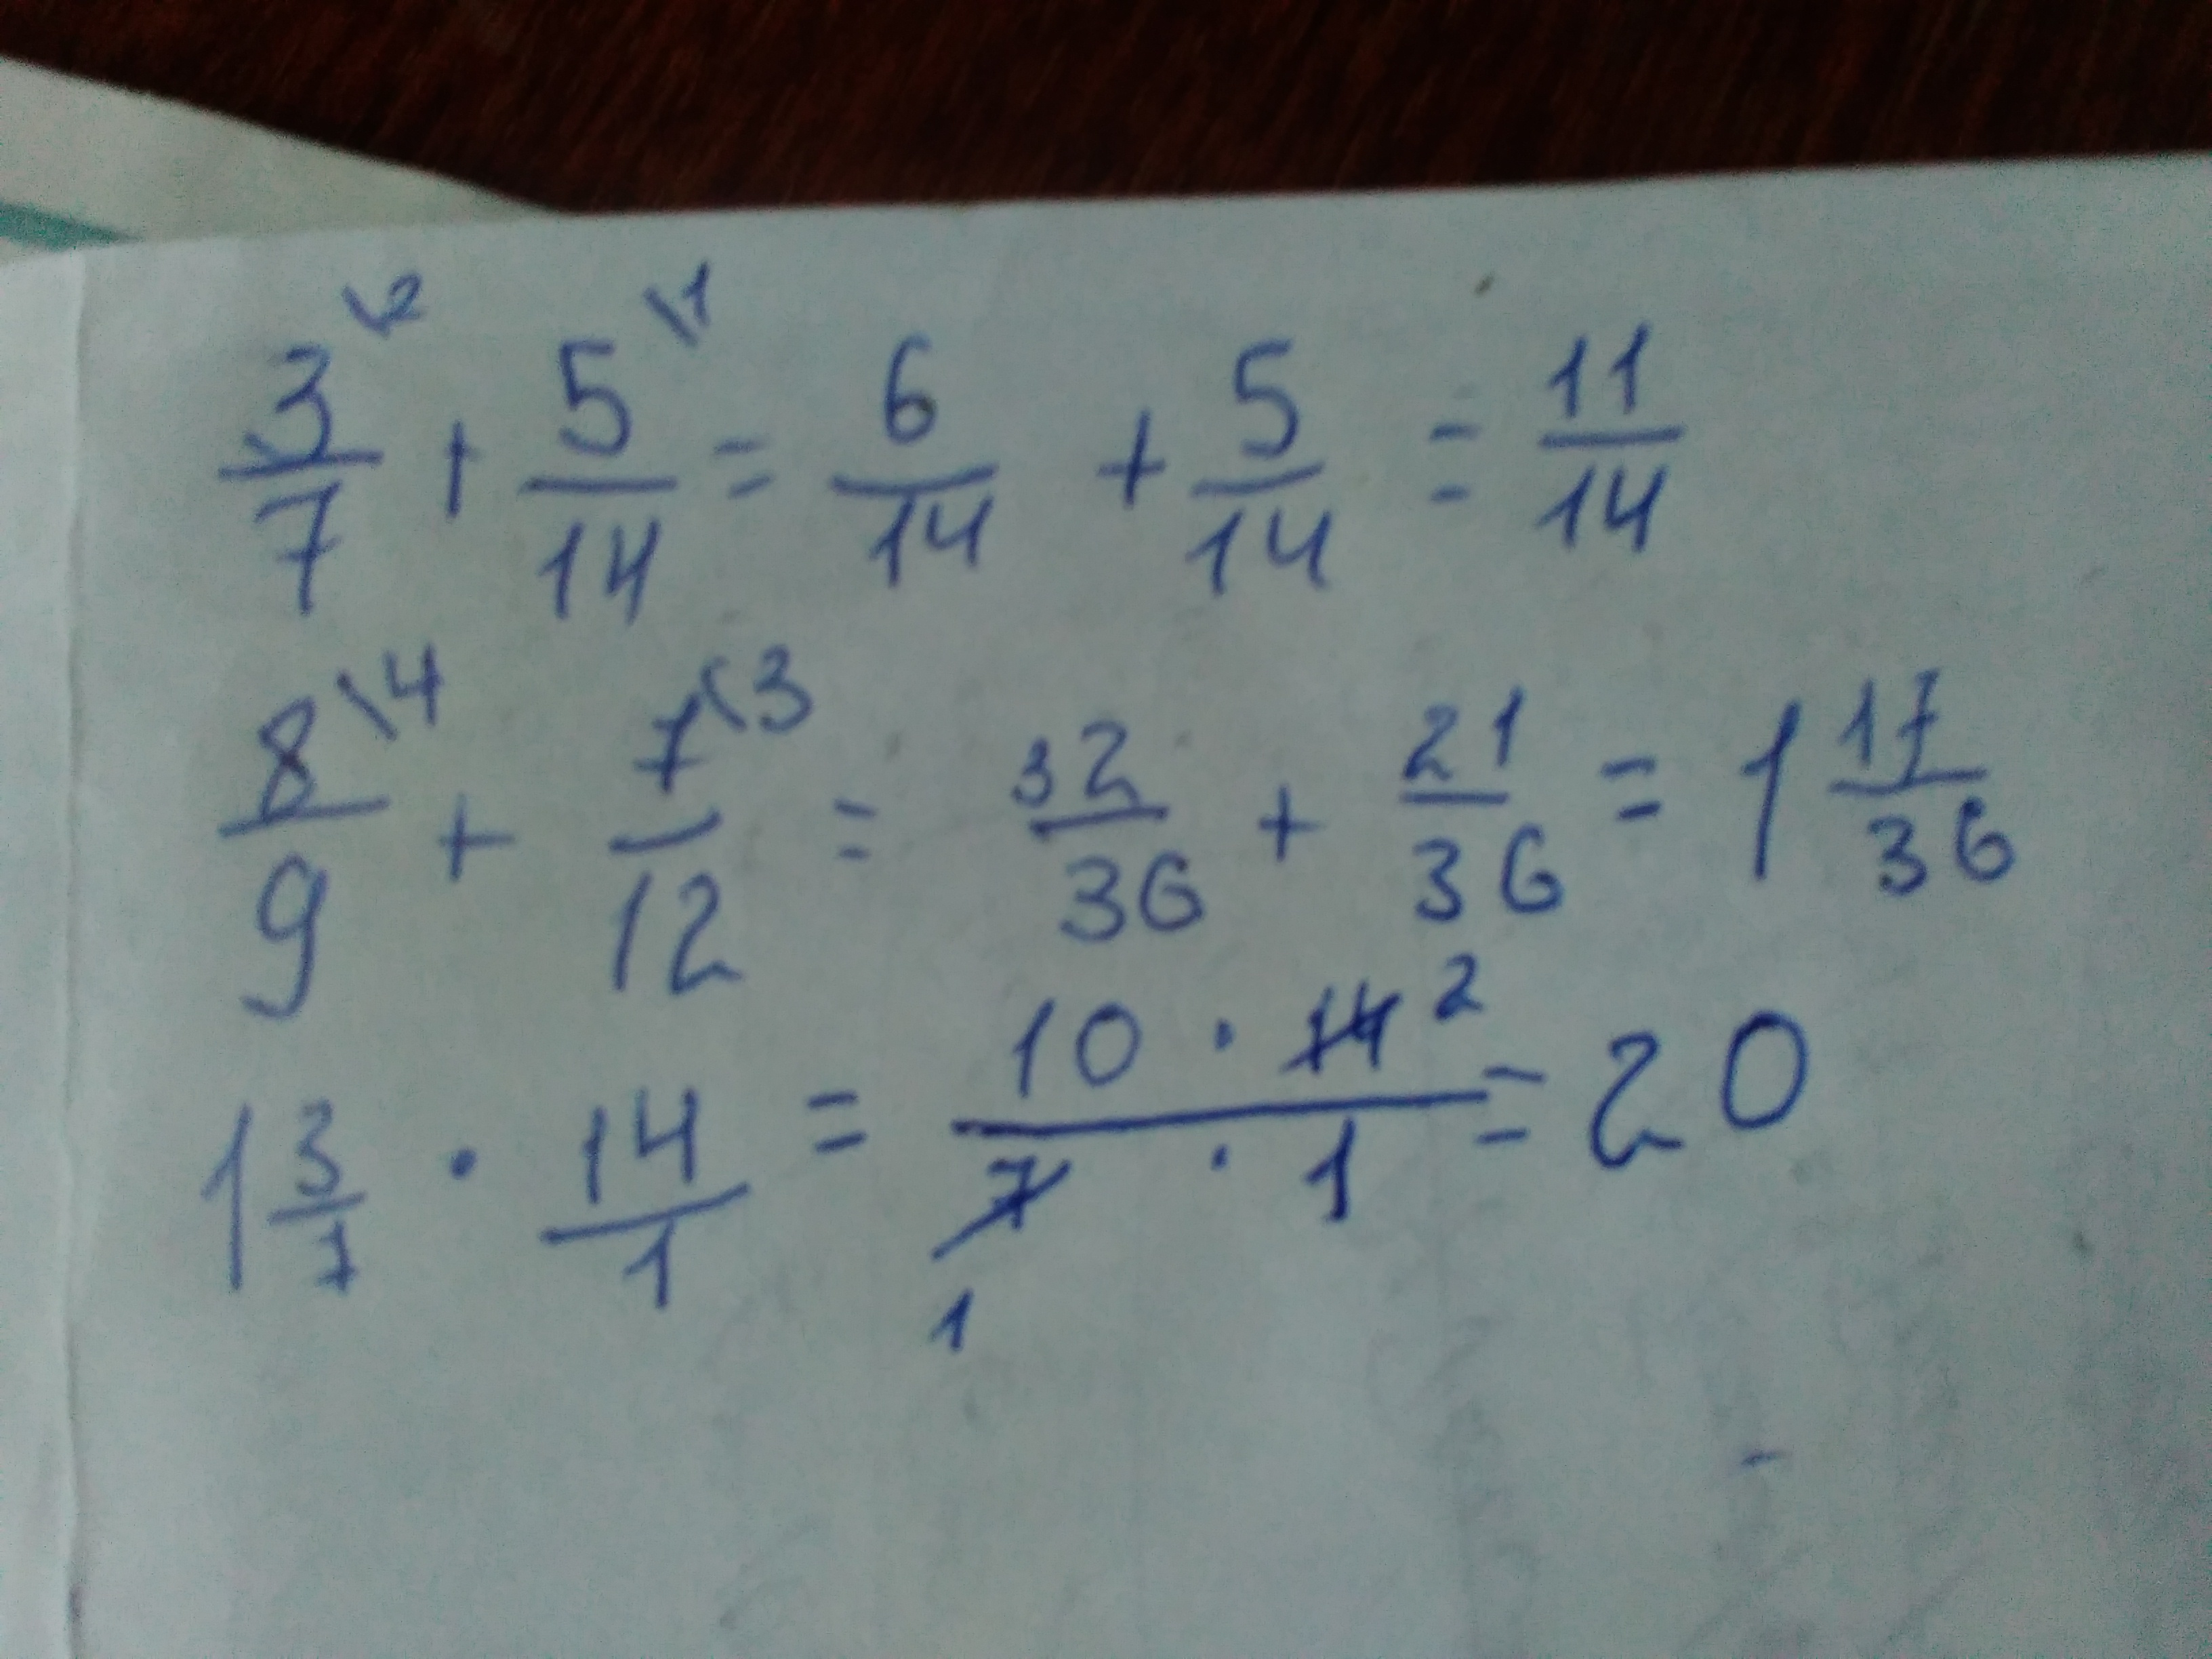 3/7 \2 + 5/14 \1 = 6/14 + 5/14 = 11/14
8/9 \4 + 7/12 \3 = 32/36 + 21/36 = 1 17/36
1 3/7 · 14/1 = 10 · 14 2 / 7 1 · 1 = 20